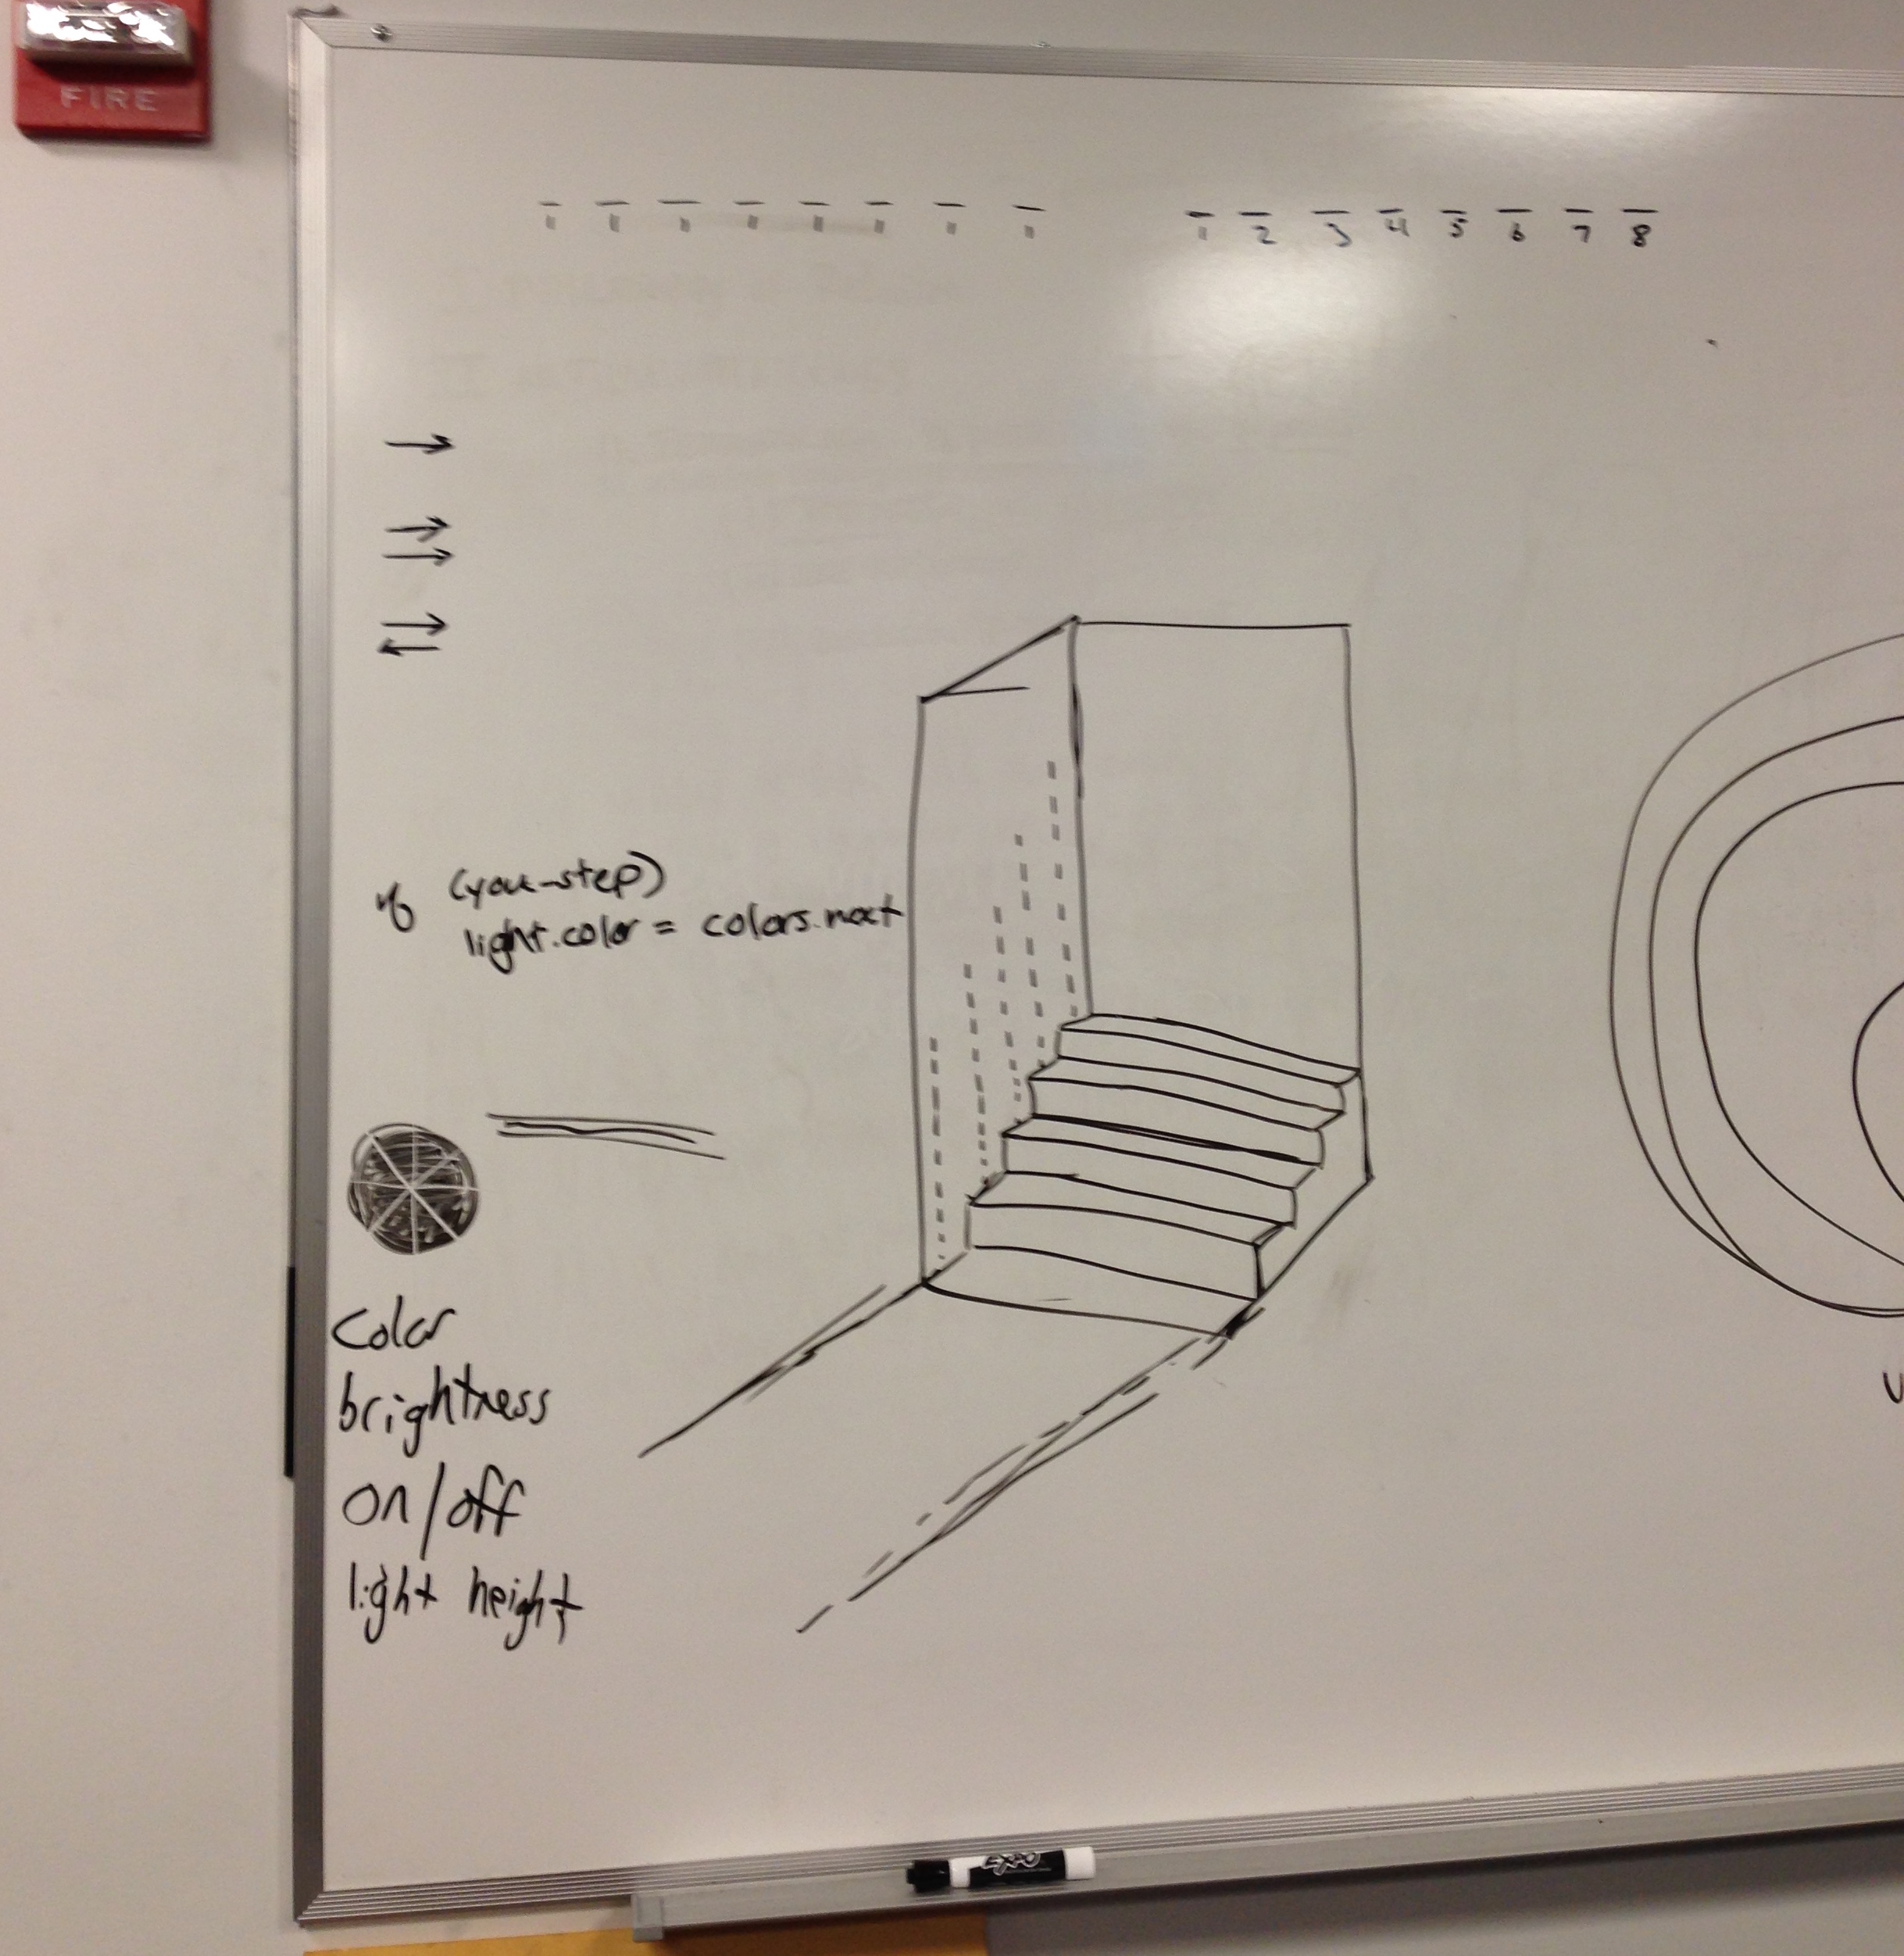 FIRE
1 2 3 4 5 6 7 8
if (you-step)
light.color = colors.next
Color
brightness
on/off
light height
EXPO